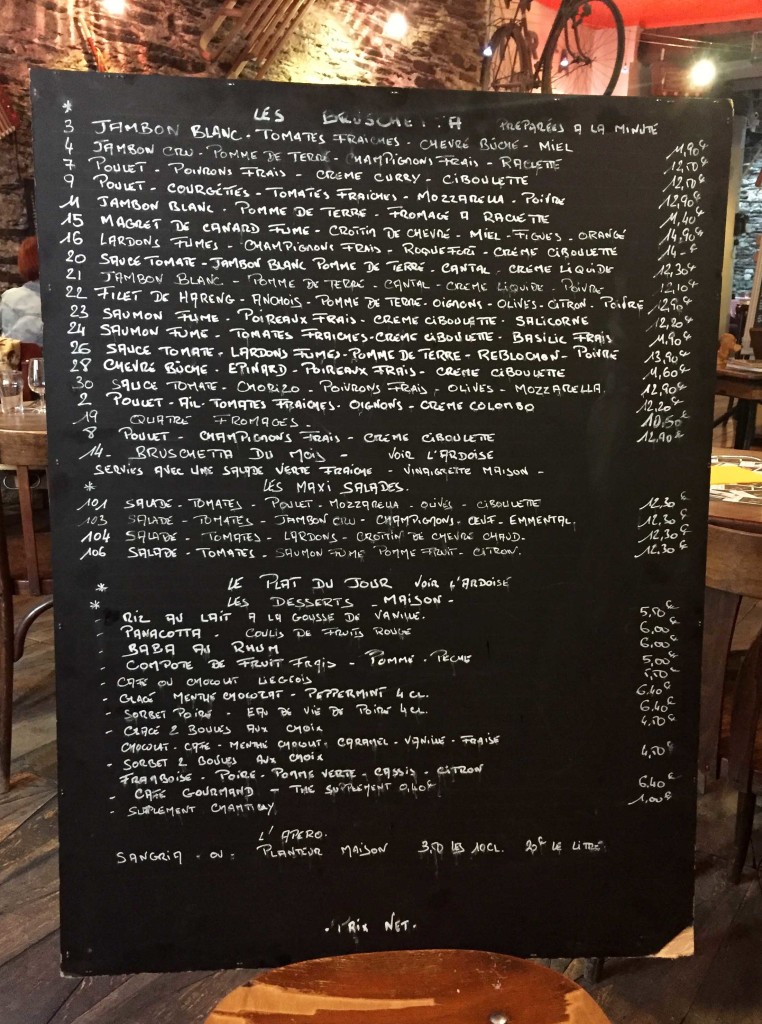 * LES BRUSCHETTA PREPARÉES A LA MINUTE
3 JAMBON BLANC - TOMATES FRAICHES - CHEVRE BÛCHE - MIEL 11,90€
4 JAMBON CRU - POMME DE TERRE - CHAMPIGNONS FRAIS - RACLETTE 12,50€
7 POULET - POIVRONS FRAIS - CRÈME CURRY - CIBOULETTE 12,50€
9 POULET - COURGETTES - TOMATES FRAICHES - MOZZARELLA - POIVRE 12,90€
11 JAMBON BLANC - POMME DE TERRE - FROMAGE A RACLETTE 11,40€
15 MAGRET DE CANARD FUMÉ - CROTTIN DE CHEVRE - MIEL - FIGUES - ORANGE 14,90€
16 LARDONS FUMÉS - CHAMPIGNONS FRAIS - ROQUEFORT - CRÈME CIBOULETTE 14 - €
20 SAUCE TOMATE - JAMBON BLANC POMME DE TERRE - CANTAL - CRÈME LIQUIDE 12,30€
21 JAMBON BLANC - POMME DE TERRE - CANTAL - CRÈME LIQUIDE - POIVRE 12,10€
22 FILET DE HARENG - ANCHOIS - POMME DE TERRE - OIGNONS - OLIVES - CITRON - POIVRE 12,90€
23 SAUMON FUMÉ - POIREAUX FRAIS - CREME CIBOULETTE - SALICORNE 12,20€
24 SAUMON FUMÉ - TOMATES FRAICHES - CRÈME CIBOULETTE - BASILIC FRAIS 11,90€
26 SAUCE TOMATE - LARDONS FUMÉS - POMME DE TERRE - REBLOCHON - POIVRE 13,90€
28 CHEVRE BÛCHE - EPINARD - POIREAUX FRAIS - CRÈME CIBOULETTE 11,60€
30 SAUCE TOMATE - CHORIZO - POIVRONS FRAIS - OLIVES - MOZZARELLA 12,90€
2 POULET - AIL - TOMATES FRAICHES - OIGNONS - CREME COLOMBO 12,20€
19 QUATRE FROMAGES - 10,50€
8 POULET - CHAMPIGNONS FRAIS - CREME CIBOULETTE 12,90€
14 - BRUSCHETTA DU MOIS - VOIR L'ARDOISE
SERVIES AVEC UNE SALADE VERTE FRAICHE - VINAIGRETTE MAISON -
* LES MAXI SALADES.
101 SALADE - TOMATES - POULET - MOZZARELLA - OLIVES - CIBOULETTE 12,30€
103 SALADE - TOMATES - JAMBON CRU - CHAMPIGNONS - OEUF - EMMENTAL 12,30€
104 SALADE - TOMATES - LARDONS - CROTTIN DE CHEVRE CHAUD. 12,30€
106 SALADE - TOMATES - SAUMON FUMÉ POMME FRUIT - CITRON. 12,30€
* LE PLAT DU JOUR VOIR L'ARDOISE
* LES DESSERTS - MAISON -
- RIZ AU LAIT A LA GOUSSE DE VANILLE. 5,50€
- PANACOTTA - COULIS DE FRUITS ROUGE 6,00€
- BABA AU RHUM 6,00€
- COMPOTE DE FRUIT FRAIS - POMME - PÊCHE 5,00€
- CAFÉ OU CHOCOLAT LIEGEOIS 5,50€
- GLACE MENTHE CHOCOLAT - PEPPERMINT 4 CL. 6,40€
- SORBET POIRE - EAU DE VIE DE POIRE 4 CL. 6,40€
- GLACE 2 BOULES AUX CHOIX 4,50€
CHOCOLAT - CAFE - MENTHE CHOCOLAT - CARAMEL - VANILLE - FRAISE
- SORBET 2 BOULES AUX CHOIX 4,50€
FRAMBOISE - POIRE - POMME VERTE - CASSIS - CITRON
- CAFE GOURMAND - THE SUPPLEMENT 0,40€ 6,40€
- SUPLEMENT CHANTILLY 1,00€
L'APERO.
SANGRIA - OU - PLANTEUR MAISON 3,50 LES 10CL. 20€ LE LITRE
- PRIX NET -